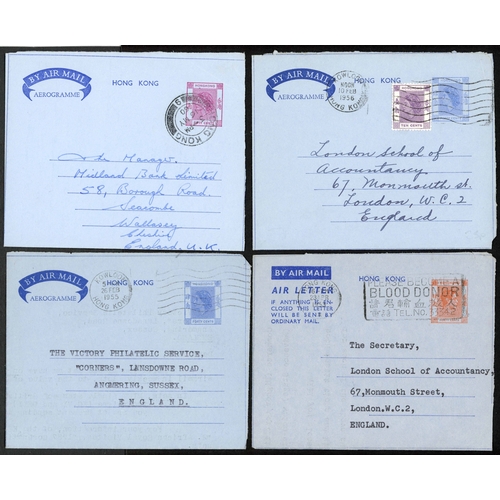 BY AIR MAIL
AEROGRAMME
HONG KONG
HONG KONG
The Manager,
Midland Bank Limited
58, Borough Road.
Seacombe
Wallasey
Cheshire
England, U.K.
BY AIR MAIL
AEROGRAMME
HONG KONG
KOWLOON
NOON
10 FEB
1956
HONG KONG
TEN CENTS
London School of
Accountancy
67, Monmouth st.
London, W.C. 2
England
BY AIR MAIL
AEROGRAMME
HONG KONG
KOWLOON
26 FEB
1955
HONG KONG
THE VICTORY PHILATELIC SERVICE,
"CORNERS", LANSDOWNE ROAD,
ANGMERING, SUSSEX,
ENGLAND.
BY AIR MAIL
AIR LETTER
IF ANYTHING IS EN-
CLOSED THIS LETTER
WILL BE SENT BY
ORDINARY MAIL.
HONG KONG
HONG KONG
PLEASE BECOME A
BLOOD DONOR
TEL. NO.
The Secretary,
London School of Accountancy,
67, Monmouth Street,
London. W.C.2,
ENGLAND.